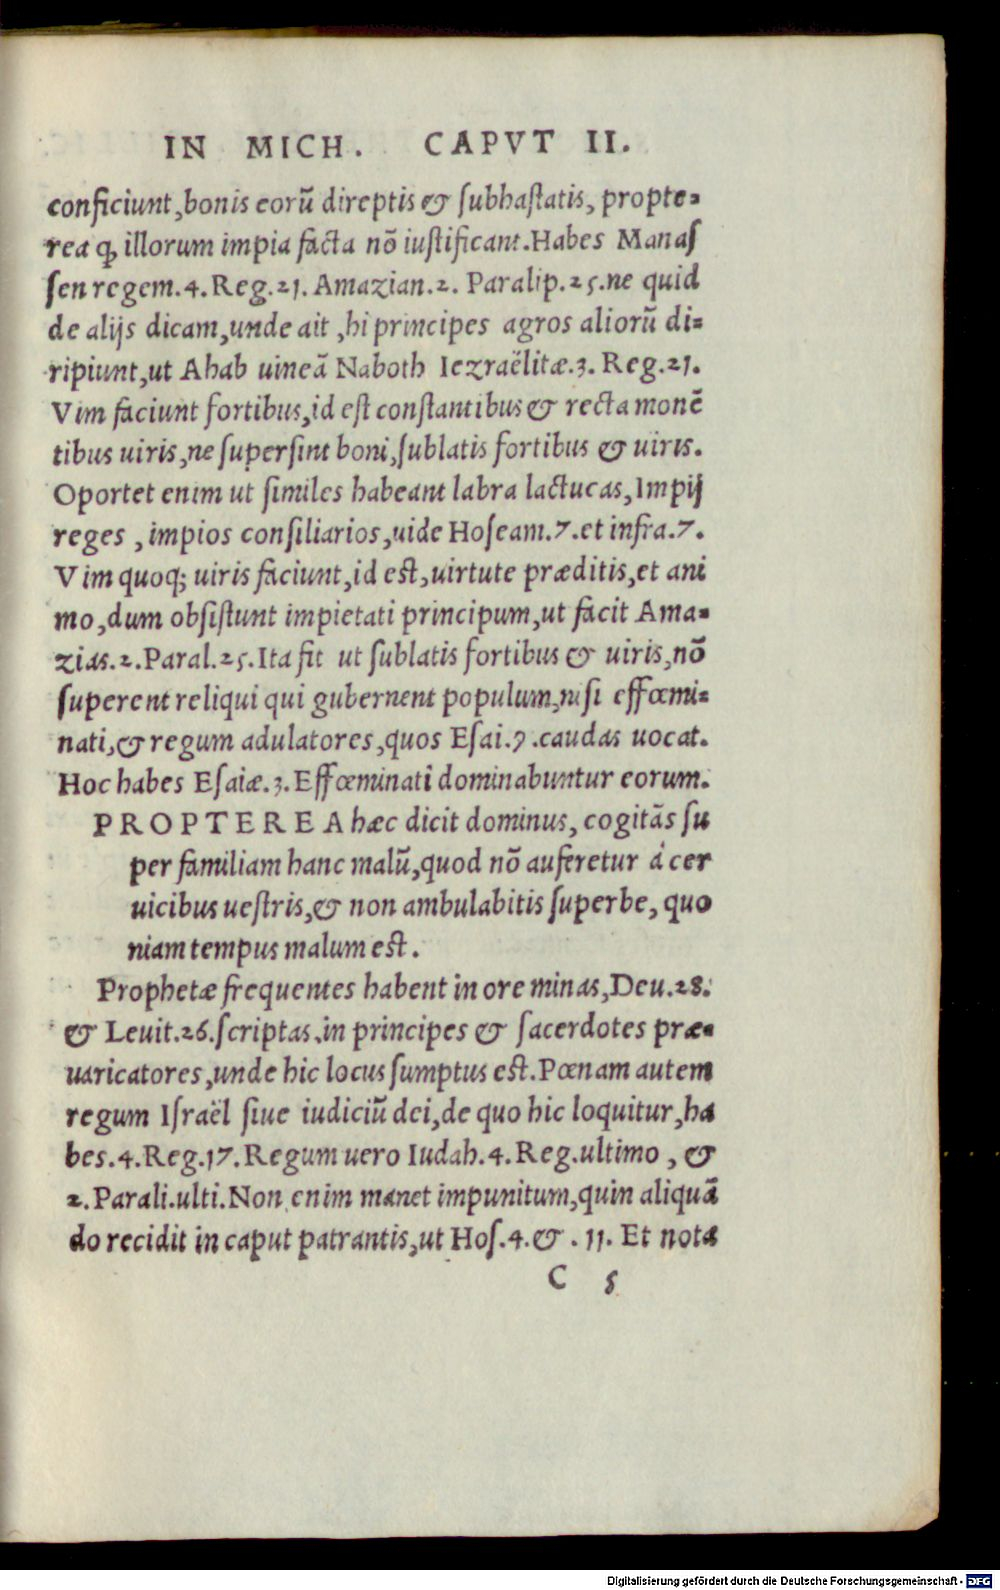 IN MICH. CAPVT II.
conficiunt, bonis eorũ direptis & ſubhaſtatis, propte=
rea ꝙ illorum impia facta nõ iuſtificant. Habes Manaſ
ſen regem. 4. Reg. 21. Amazian. 2. Paralip. 25. ne quid
de alijs dicam, unde ait, hi principes agros aliorũ di=
ripiunt, ut Ahab uineã Naboth Iezraëlitæ. 3. Reg. 21.
Vim faciunt fortibus, id eſt conſtantibus & recta monẽ
tibus uiris, ne ſuperſint boni, ſublatis fortibus & uiris.
Oportet enim ut ſimiles habeant labra lactucas, Impij
reges, impios conſiliarios, uide Hoſeam. 7. et infra. 7.
Vim quoq; uiris faciunt, id eſt, uirtute præditis, et ani
mo, dum obſiſtunt impietati principum, ut facit Ama=
zias. 2. Paral. 25. Ita fit ut ſublatis fortibus & uiris, nõ
ſuperent reliqui qui gubernent populum, niſi effœmi=
nati, & regum adulatores, quos Eſai. 9. caudas uocat.
Hoc habes Eſaiæ. 3. Effœminati dominabuntur eorum.
PROPTEREA hæc dicit dominus, cogitãs ſu
per familiam hanc malũ, quod nõ auferetur à cer
uicibus ueſtris, & non ambulabitis ſuperbe, quo
niam tempus malum eſt.
Prophetæ frequentes habent in ore minas, Deu. 28.
& Leuit. 26. ſcriptas, in principes & ſacerdotes præ=
uaricatores, unde hic locus ſumptus eſt. Pœnam autem
regum Iſraël ſiue iudiciũ dei, de quo hic loquitur, ha
bes. 4. Reg. 17. Regum uero Iudah. 4. Reg. ultimo, &
2. Parali. ulti. Non enim manet impunitum, quin aliquã
do recidit in caput patrantis, ut Hoſ. 4. & . 11. Et nota
C 5
Digitalisierung gefördert durch die Deutsche Forschungsgemeinschaft - DFG